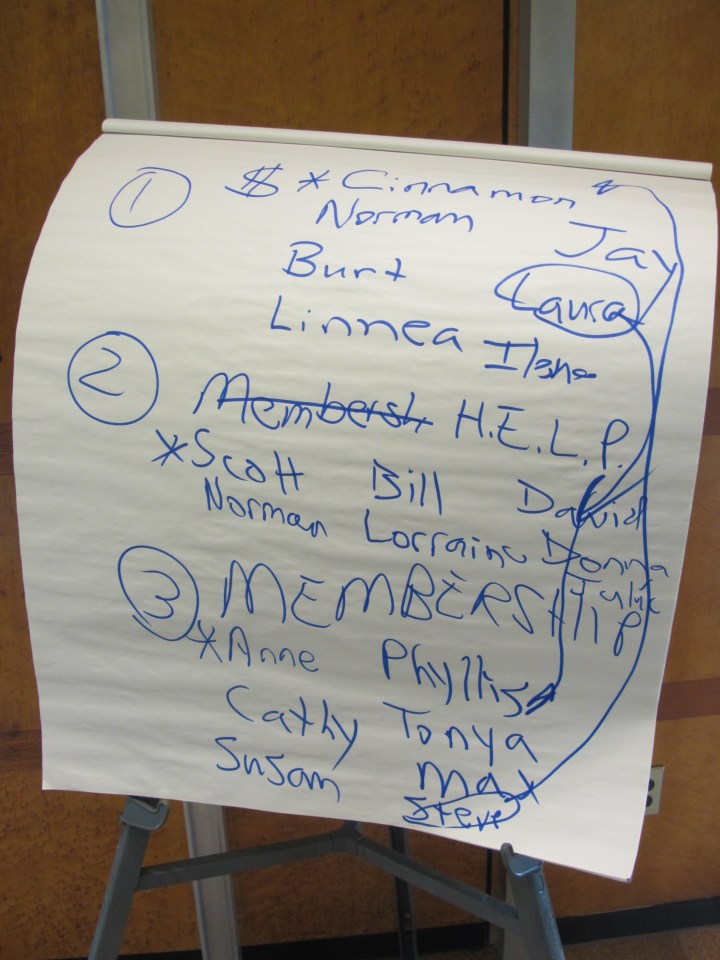 1 $ * Cinnamon
Norman
Jay
Burt
Laura
Linnea
2 Membersh H.E.L.P.
*Scott Bill David
Norman Lorraine Donna
Julie
3 MEMBERSHIP
*Anne Phyllis
Cathy Tonya
Susan Max
Steve